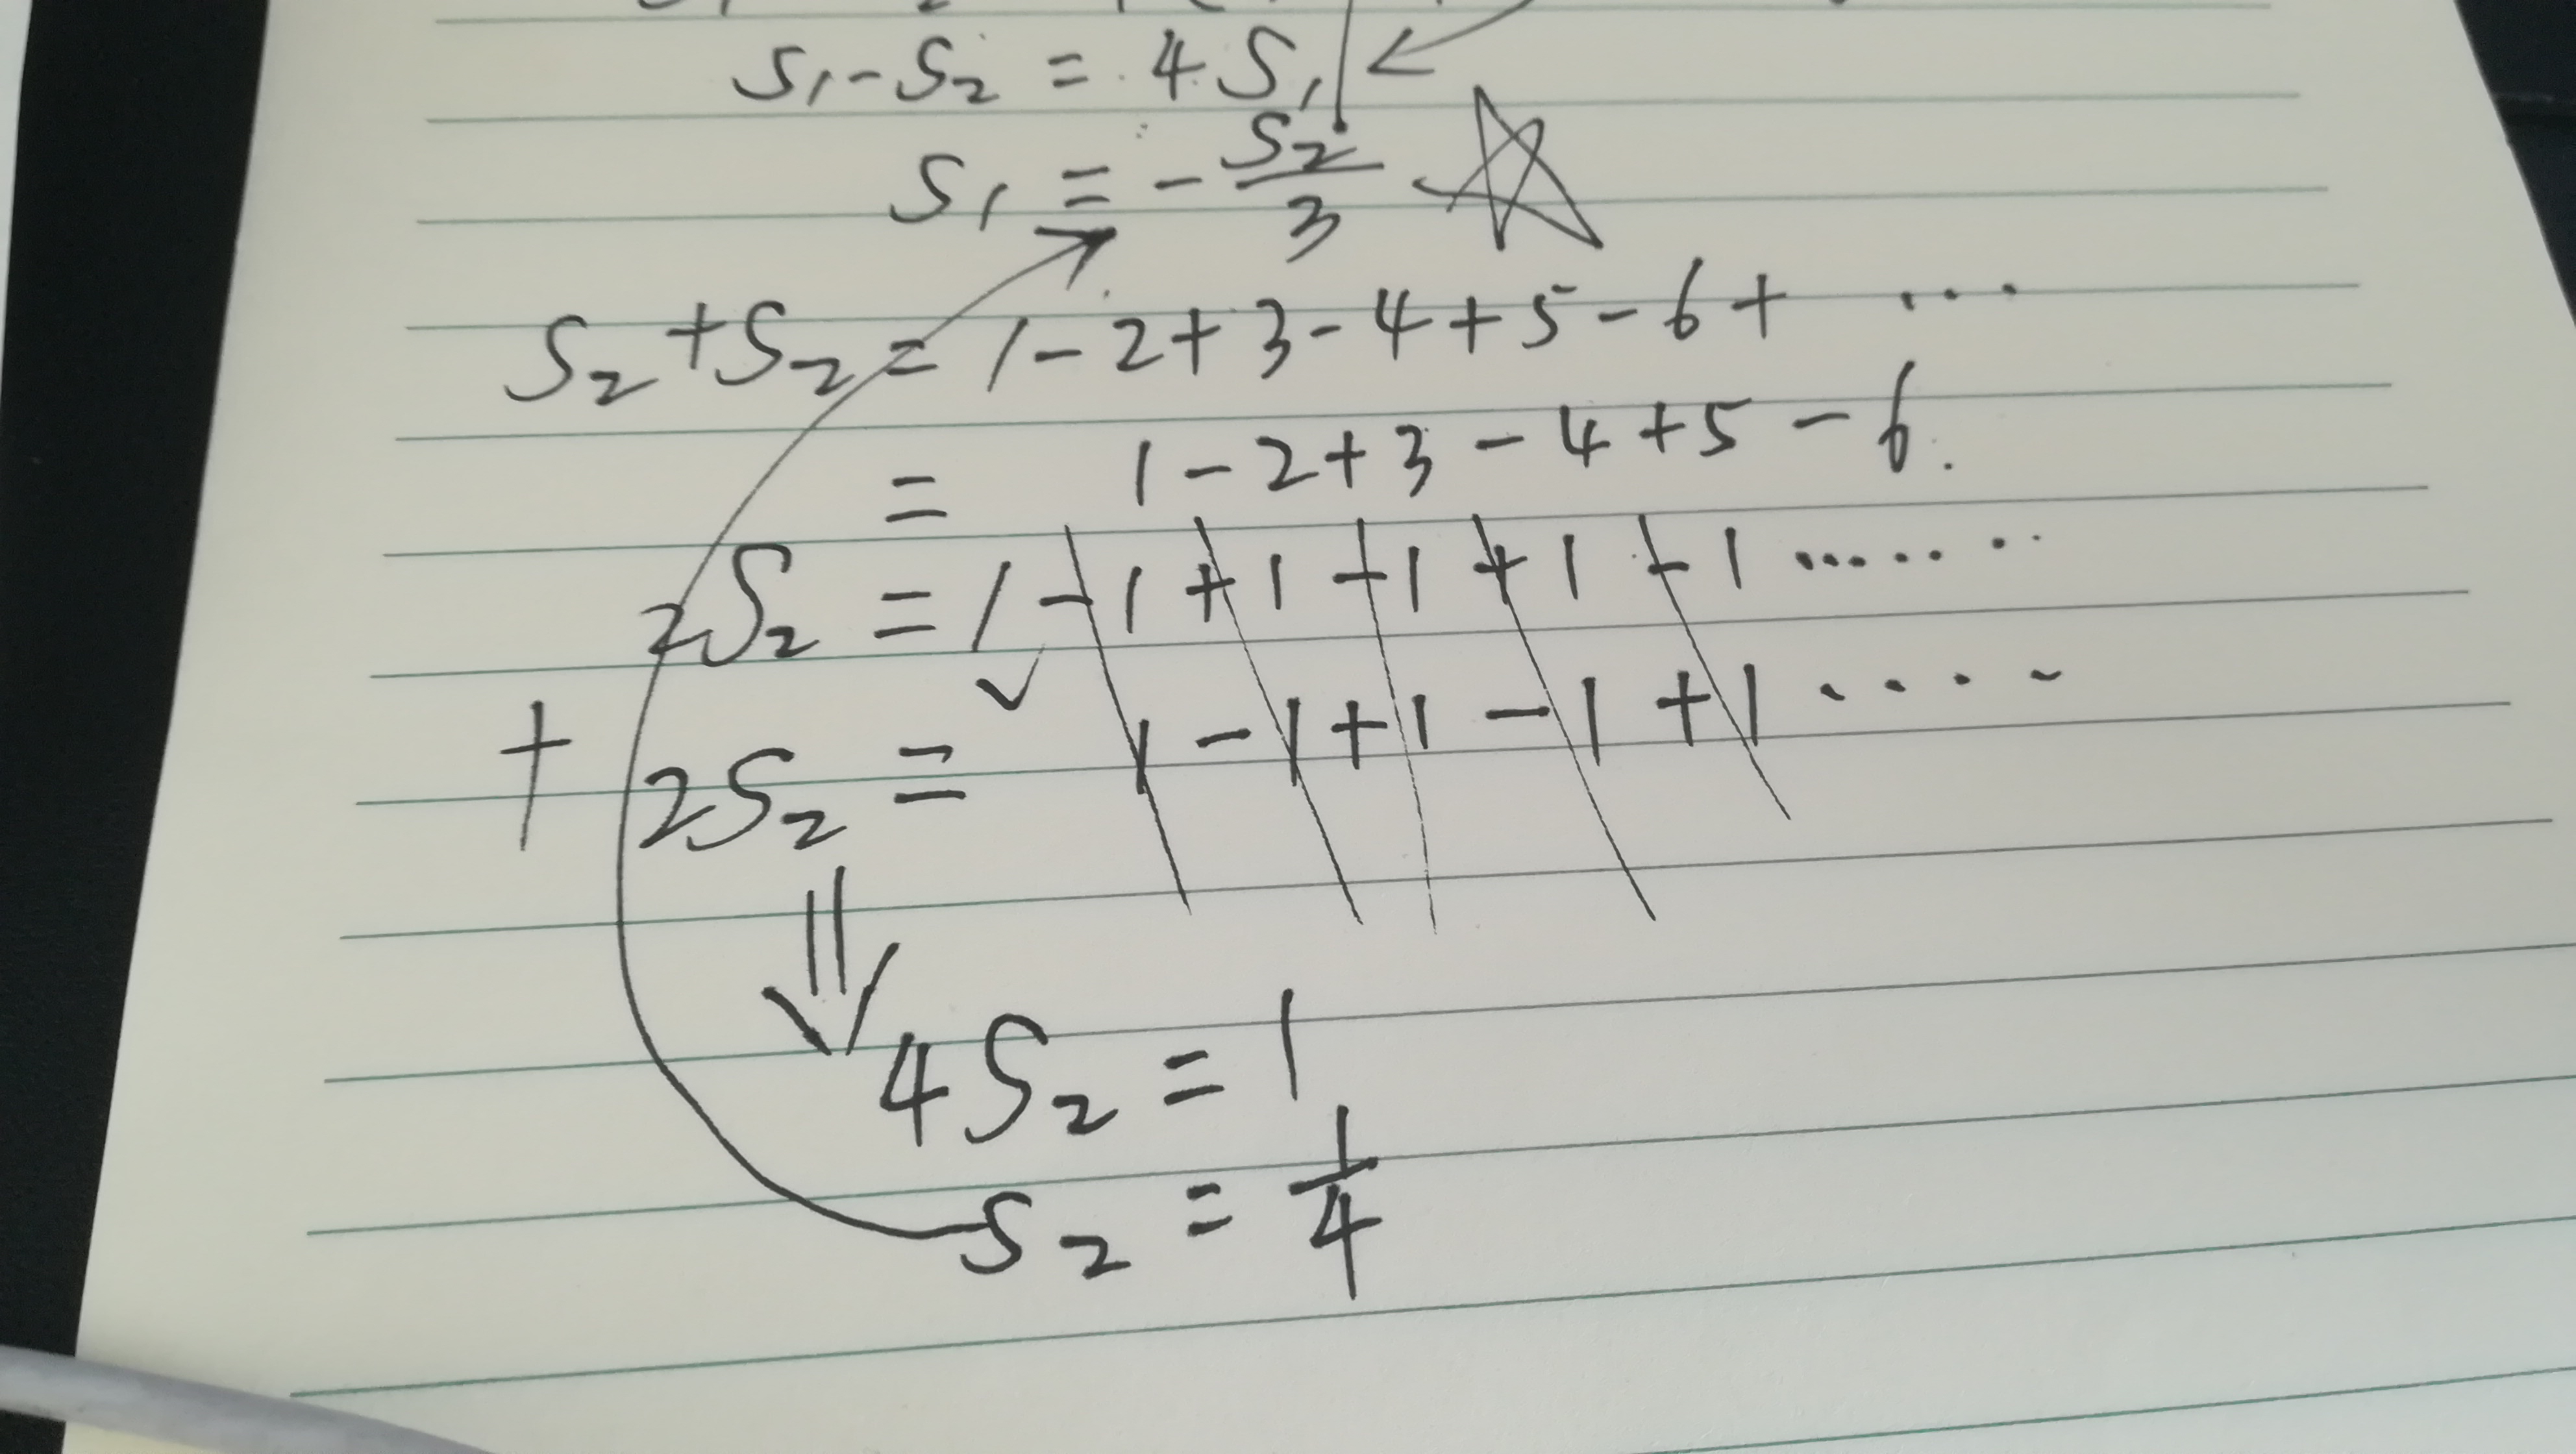 S₁-S₂ = 4S₁
S₁ = -S₂/3
S₂+S₂ = 1-2+3-4+5-6+ ...
= 1-2+3-4+5-6.
2S₂ = 1-1+1-1+1-1 ........
+ 2S₂ = 1-1+1-1+1 ....
4S₂ = 1
S₂ = 1/4